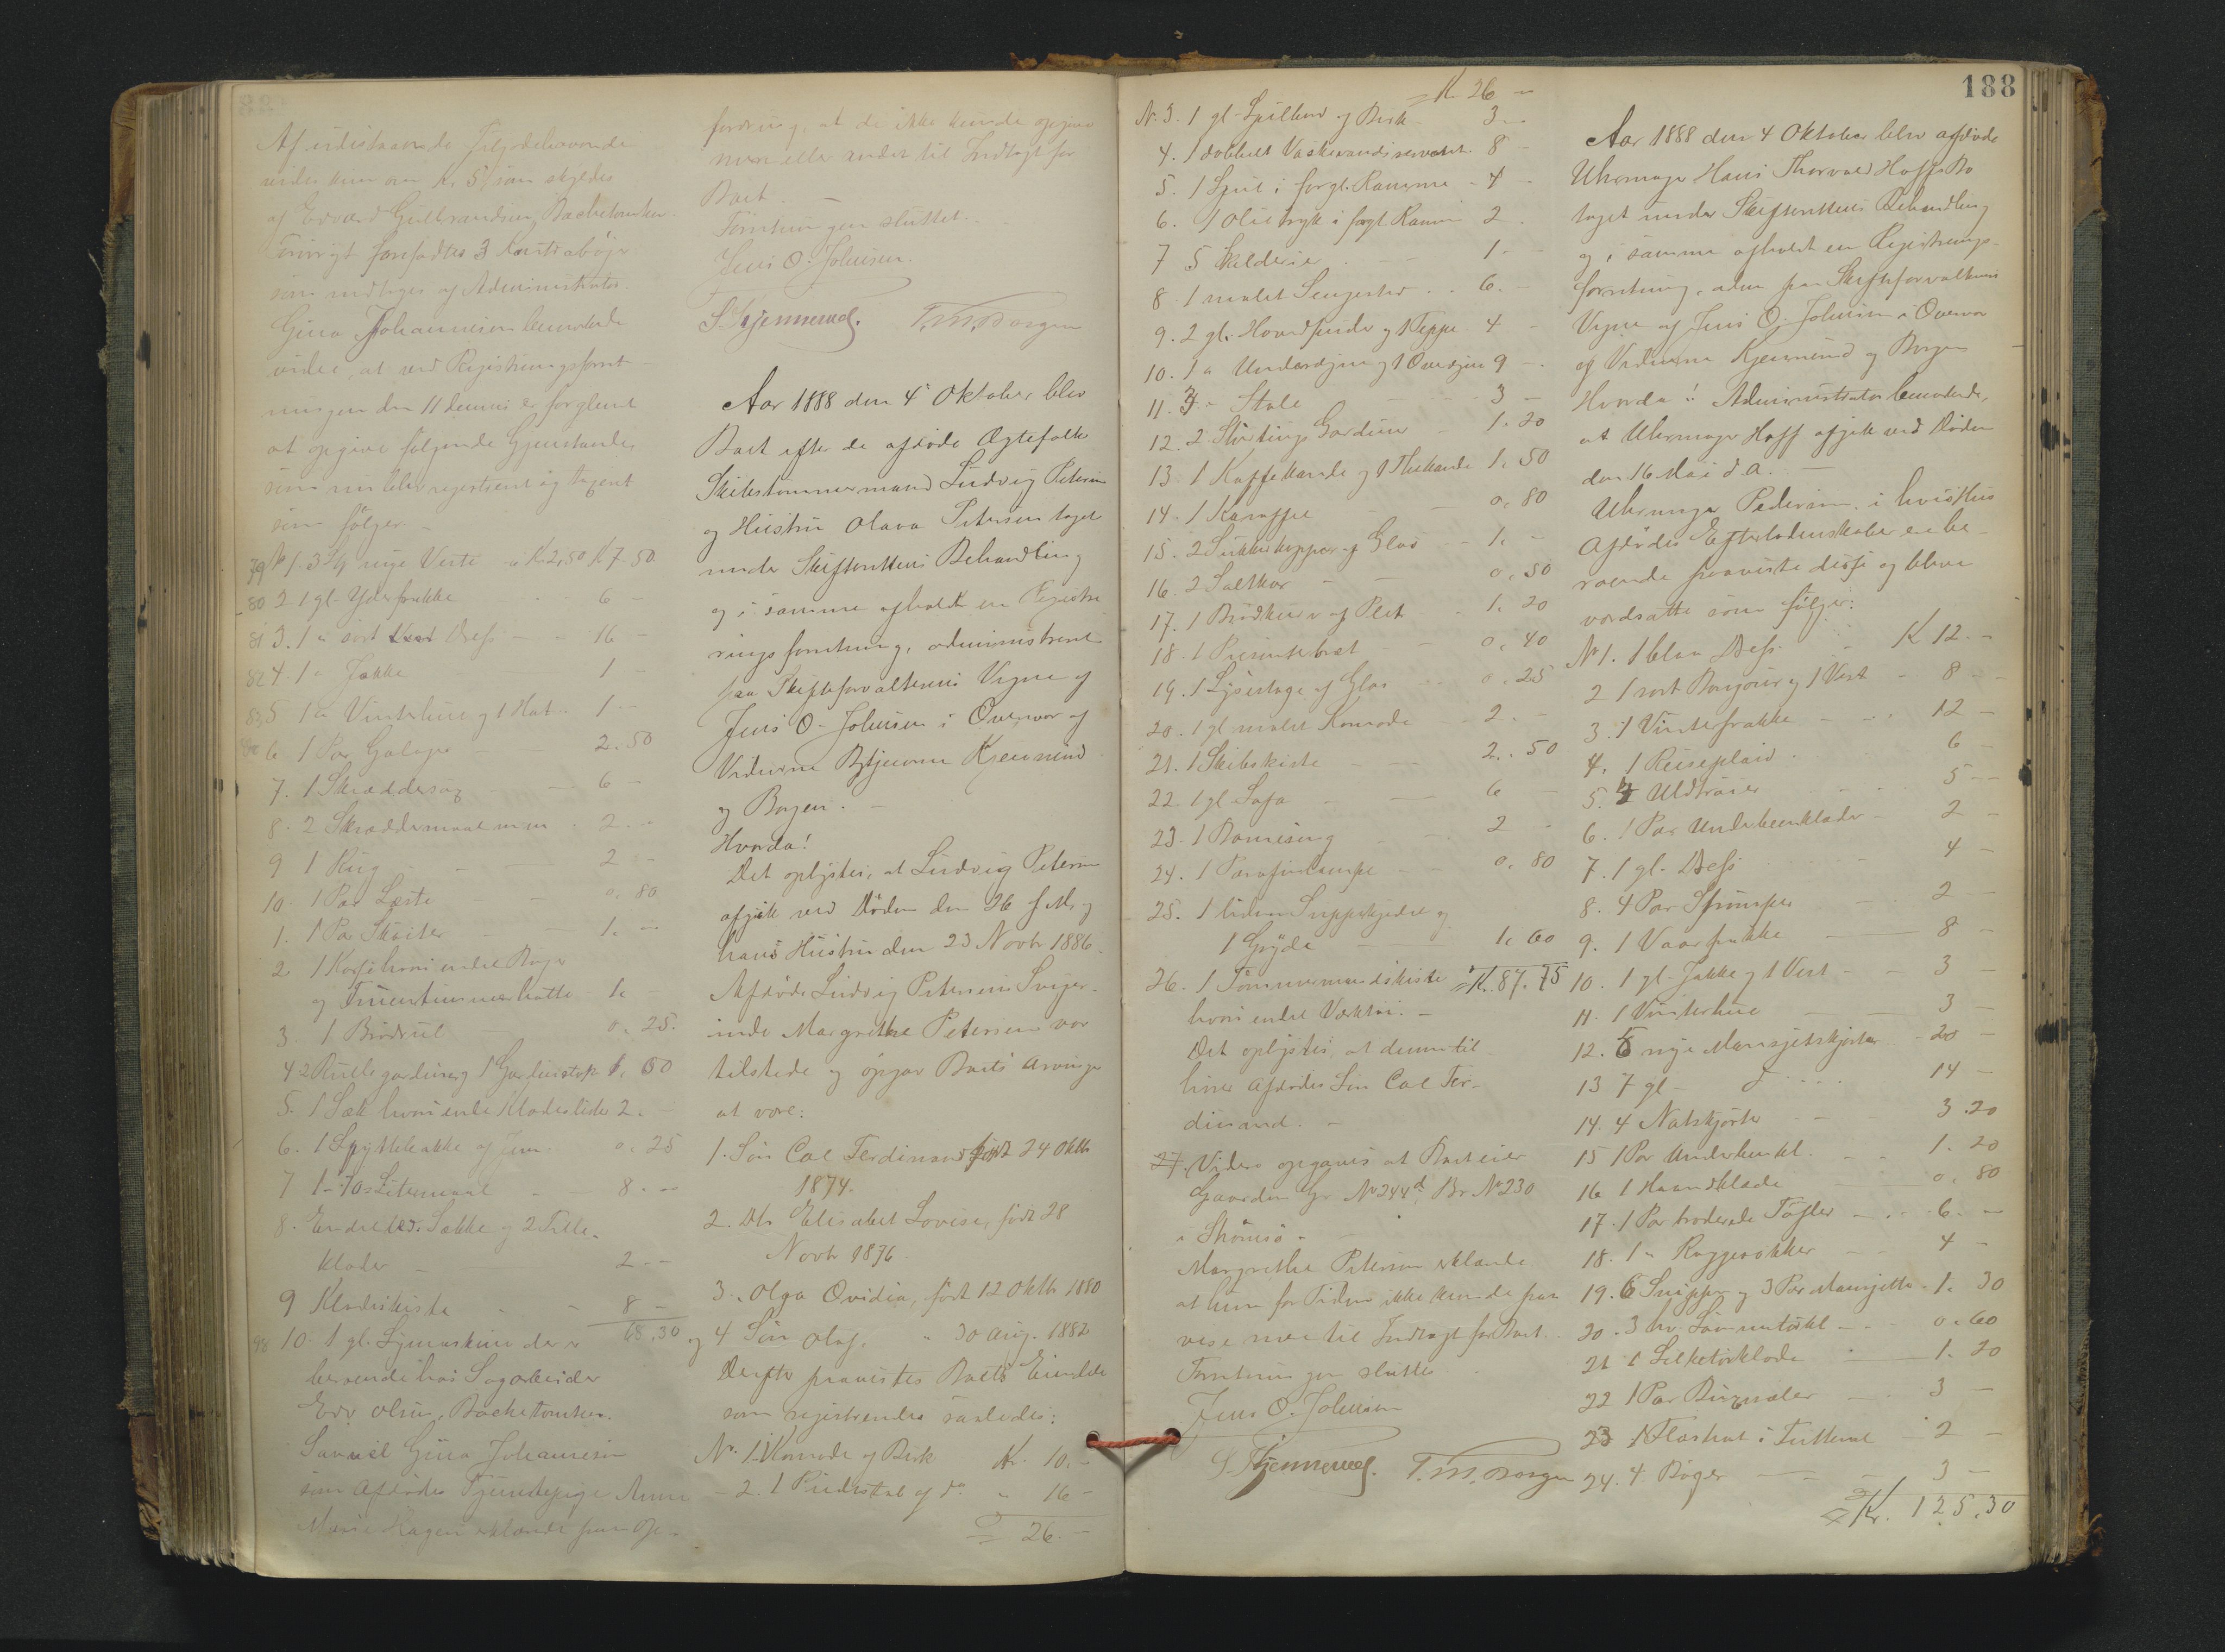 Af udestaaende Tilgodehavende
vides kun om Kr. 5, som skyldes
af Edvard Gulbrandsen, Bachetomten.
Forøvrigt forefandtes 3 Kontrabøger
som modtoges af Administrator.
Gina Johannesen bemærkede
videre, at ved Registreringsforret-
ningen den 11 dennes er forglemt
at opgive følgende Gjenstande,
som nu blev registreret og taxeret
som følger. -
79 No 1. 3 Stk nye Veste a K. 2,50 K 7.50
80 2 1 gl. Yderfrakke 6 -
81 3. 1 " sort Dress 16 -
82 4. 1 " Jakke 1 -
83 5 1 " Vinterhue og 1 Hat 1 -
6 1 Par Galoger 2.50
7. 1 Skræddersag 6 -
8. 2 Skræddermaal 2 -
9 1 Rug 2 -
10. 1 Par Læste 0. 80
1. 1 Par Skøiter 1. -
2 1 Kasse hvori endel Bøger
og Fruentimmerhatte 1. -
3. 1 Brødrul 0. 25.
4 2 Rullegardiner og 1 Gardinstok 1. 60
5. 1 Sæk hvori endel Klædesfiller 2. -
6. 1 Spyttebakke af Jern. 0. 25
7 1 - 70 Litermaal 8. -
8. Endel Sække og 2 Fille-
klæder 2 -
9 Klædeskiste 8 -
68,30
98 10. 1 gl. Symaskine der er
beroende hos Sagarbeider
Edv Olsen, Bachetomten.
Samuel Gina Johannesen
som Afdødes Tjenestepige Anne
Marie Hagen erklærede paa Op-
fordring, at de ikke kunde opgive
mere eller andet til Indtægt for
Boet. -
Forretningen sluttet.
Jens O. Johnsen.
S. Kjennerud. T. M. Borgen
Aar 1888 den 4' Oktober blev
Boet efter de afdøde Ægtefolk
Skibstømmermand Ludvig Petersen
og Hustru Olava Petersen taget
under Skifterettens Behandling
og i samme afholdt en Registre
ringsforretning, administreret
paa Skifteforvalterens Vegne af
Jens O. Johnsen i Overvær af
Vidnerne Kjennerud
og Borgen. -
Hvorda!
Det oplystes, at Ludvig Petersen
afgik ved Døden den 26 f. M. og
hans Hustru den 23 Novbr 1886.
Afdøde Ludvig Petersens Sviger-
inde Margrethe Petersen var
tilstede og opgav Boets Arvinger
at være:
1. Søn Carl Ferdinand født 24 Oktbr
1874.
2. Dtr Elisabet Lovise, født 28
Novbr 1876
3. " Olga Ovidia, født 12 Oktbr 1880
og 4 Søn Olaf, " 30 Aug. 1882
Derefter paavistes Boets Eiendele
som registreredes saaledes:
No. 1 1 Komode af Birk Kr. 10. -
- 2. 1 Pidestal af do " 16 -
26. -
K 26 -
No. 3. 1 gl. Spillebord af Birk 3 -
4. 1 dobbelt Vaskevandsservant 8 -
5. 1 Speil i forgl. Ramme 4 -
6. 1 Olietryk i forgl. Ramme 2
7 5 Skilderier 1 -
8. 1 malet Sengested 6. -
9. 2 gl. Hovedpuder og 1 Teppe 4 -
10. 1 " Underdyne og 1 Overdyne 9 -
11. 3 " Stole 3 -
12. 2 Shirtings Gardiner 1. 20
13. 1 Kaffekande og 1 Thekande 1. 50
14. 1 Karaffel 0. 80
15. 2 Sukkerkopper af Glas 1. -
16. 2 Saltkar 0. 50
17. 1 Brødkurv af Plet 1. 20
18. 1 Presenterbræt 0. 40
19. 1 Lysestage af Glas 0. 25
20. 1 gl. malet Komode 2. -
21. 1 Skibskiste 2. 50
22. 1 gl. Sofa 6 -
23. 1 Barneseng 2
24. 1 Parafinlampe 0. 80
25. 1 liden Suppekjedel og
1 Gryde 1. 60
26. 1 Tømmermandskiste Kr. 87. 75
hvori endel Værktøi. -
Det oplystes, at denne til
hører Afdødes Søn Carl Fer-
dinand. -
27. Videre opgaves at Boet eier
Gaarden Gr. No 244d, Br. No 230
i Strømsø. -
Margrethe Petersen erklærede
at hun for Tiden ikke kunde paa
vise mere til Indtægt for Boet.
Forretningen sluttes
Jens O. Johnsen
S. Kjennerud. T. M. Borgen
188
Aar 1888 den 4 Oktober blev afdøde
Uhrmager Hans Thorvald Hoffs Bo
taget under Skifterettens Behandling
og i samme afholdt en Registrerings-
forretning, adm. paa Skifteforvalterens
Vegne af Jens O. Johnsen i Overvær
af Vidnerne Kjennerud og Borgen
Hvorda!: Administrator bemærkede,
at Uhrmager Hoff afgik ved Døden
den 16 Mai d. A. -
Uhrmager Pedersen, i hvis Hus
Afdødes Efterladenskaber er be
roende paaviste disse og bleve
værdsatte som følger:
No 1. 1 blaa Dress K 12. -
2 1 sort Bonjour og 1 Vest 8 -
3. 1 Vinterfrakke 12 -
4. 1 Reiseplaid 6
5. 4 Uldtrøier 5 -
6. 1 Par Underbenklæder 2 -
7. 1 gl. Dress 4 -
8. 4 Par Strømper 2 -
9. 1 Vaarfrakke 8 -
10. 1 gl. Jakke og 1 Vest 3 -
11. 1 Vinterhue 3 -
12. 6 nye Mansjetskjorter 20 -
13 7 gl - d 14 -
14. 4 Natskjorter 3.20
15 1 Par Underbenkl. 1. 20
16 1 Haandklæde 0. 80
17. 1 Par broderede Tøfler 6. -
18. 1 " Raggesokker 4 -
19. 6 Snipper og 3 Par Mansjetter 1. 30
20. 3 hv. Lommetørkl 0. 60
21 1 Silketørklæde 1. 20
22 1 Par Buxeseler 3 -
23 1 Flosshat i Futteral 2 -
24. 4 Bøger 3 -
Kr. 125.30